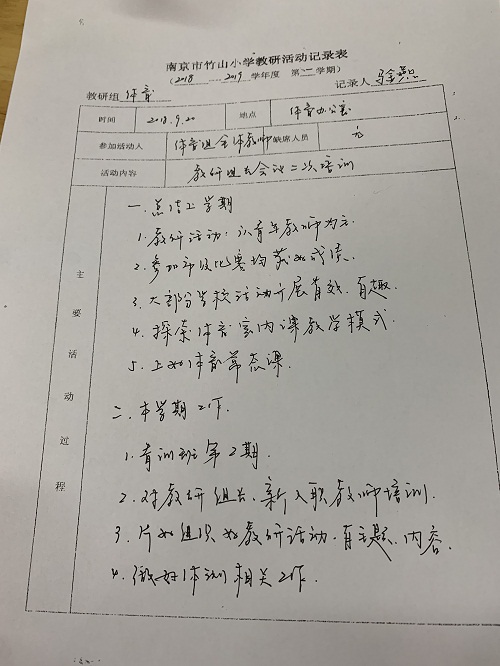 南京市竹山小学教研活动记录表
（2018 — 2019 学年度 第一学期）
教研组 体育 记录人
时间 2018.9.20 地点 体育办公室
参加活动人 体育组全体教师 缺席人员 无
活动内容 教研组长会议二次培训
主要活动过程
一.总结上学期
1.教研活动:以青年教师为主.
2.参加市级比赛均获好成绩.
3.大部分学校活动开展有效.有趣
4.探索体育室内课教学模式
5.上好体育常态课.
二.本学期工作.
1.青训班第2期.
2.对教研组长、新入职教师培训.
3.片好组织好教研活动.有主题、内容.
4.做好体测相关工作.